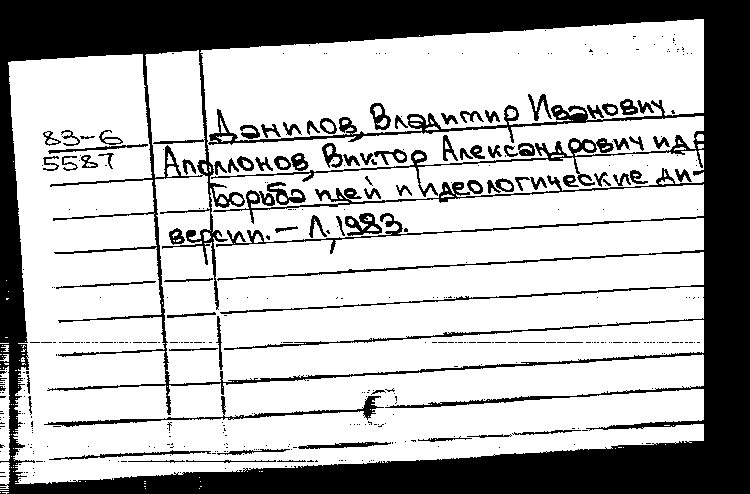 83-6
5587
Данилов, Владимир Иванович.
Аполлонов, Виктор Александрович и др
Борьба идей и идеологические ди-
версии. — Л., 1983.